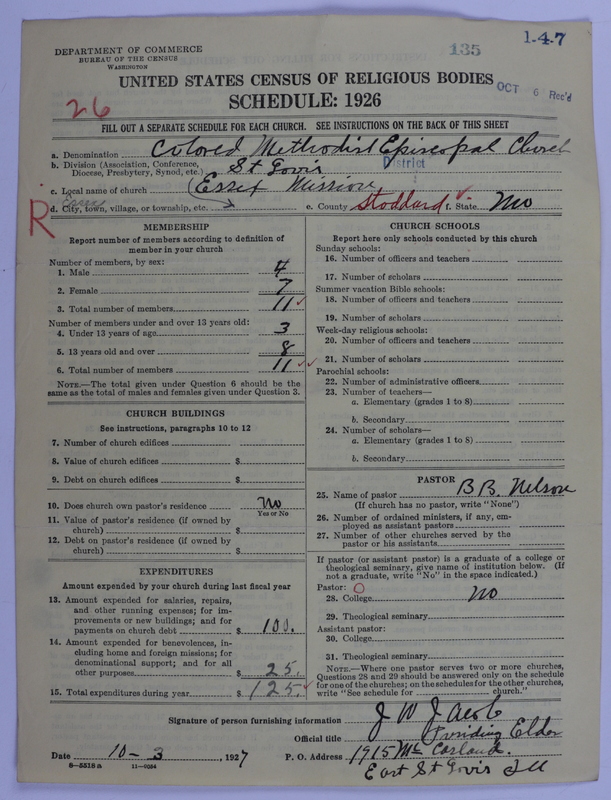 135
1-4-7
DEPARTMENT OF COMMERCE
BUREAU OF THE CENSUS
WASHINGTON
UNITED STATES CENSUS OF RELIGIOUS BODIES
SCHEDULE: 1926
OCT 6 Rec'd
26
FILL OUT A SEPARATE SCHEDULE FOR EACH CHURCH. SEE INSTRUCTIONS ON THE BACK OF THIS SHEET
a. Denomination Colored Methodist Episcopal Church
b. Division (Association, Conference, Diocese, Presbytery, Synod, etc.) St Lovis District
c. Local name of church (Essex Mission
d. City, town, village, or township, etc. e. County Stoddard f. State Mo
R
MEMBERSHIP
Report number of members according to definition of
member in your church
Number of members, by sex:
1. Male 4
2. Female 7
3. Total number of members 11
Number of members under and over 13 years old:
4. Under 13 years of age 3
5. 13 years old and over 8
6. Total number of members 11
NOTE.—The total given under Question 6 should be the
same as the total of males and females given under Question 3.
CHURCH BUILDINGS
See instructions, paragraphs 10 to 12
7. Number of church edifices
8. Value of church edifices $
9. Debt on church edifices $
10. Does church own pastor's residence No
Yes or No
11. Value of pastor's residence (if owned by
church) $
12. Debt on pastor's residence (if owned by
church) $
EXPENDITURES
Amount expended by your church during last fiscal year
13. Amount expended for salaries, repairs,
and other running expenses; for im-
provements or new buildings; and for
payments on church debt $ 100.
14. Amount expended for benevolences, in-
cluding home and foreign missions; for
denominational support; and for all
other purposes $ 25.
15. Total expenditures during year $ 125.
CHURCH SCHOOLS
Report here only schools conducted by this church
Sunday schools:
16. Number of officers and teachers
17. Number of scholars
Summer vacation Bible schools:
18. Number of officers and teachers
19. Number of scholars
Week-day religious schools:
20. Number of officers and teachers
21. Number of scholars
Parochial schools:
22. Number of administrative officers
23. Number of teachers—
a. Elementary (grades 1 to 8)
b. Secondary
24. Number of scholars—
a. Elementary (grades 1 to 8)
b. Secondary
PASTOR
25. Name of pastor B B. Nelson
(If church has no pastor, write "None")
26. Number of ordained ministers, if any, em-
ployed as assistant pastors
27. Number of other churches served by the
pastor or his assistants
If pastor (or assistant pastor) is a graduate of a college or
theological seminary, give name of institution below. (If
not a graduate, write "No" in the space indicated.)
Pastor: O
28. College No
29. Theological seminary
Assistant pastor:
30. College
31. Theological seminary
NOTE.—Where one pastor serves two or more churches,
Questions 28 and 29 should be answered only on the schedule
for one of the churches; on the schedules for the other churches,
write "See schedule for church."
Signature of person furnishing information J W Jacob
Official title Presiding Elder
Date 10-3, 1927 P. O. Address 1915 Mc Casland.
8-5518 a 11-9034
East St Lovis Ill